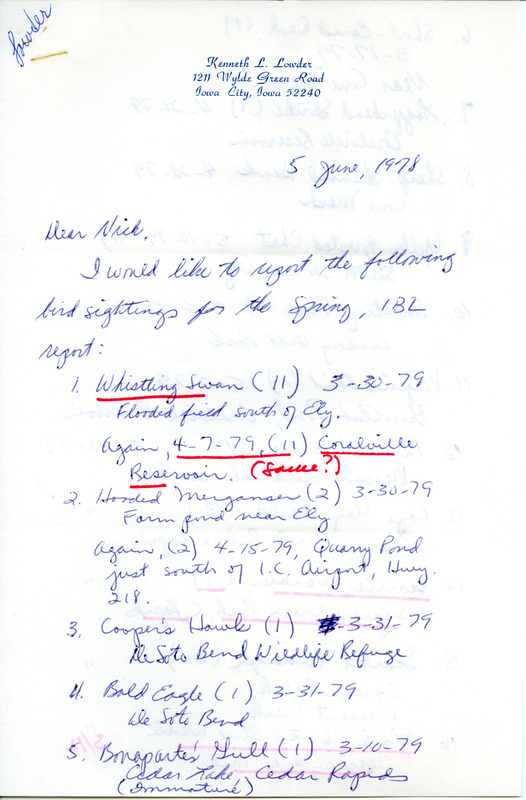 Lowder
Kenneth L. Lowder
1211 Wylde Green Road
Iowa City, Iowa 52240
5 June, 1978
Dear Nick,
I would like to report the following
bird sightings for the Spring, IBL
report:
1. Whistling Swan (11) 3-30-79
Flooded field south of Ely.
Again, 4-7-79, (11) Coralville
Reservoir. (Same?)
2. Hooded Merganser (2) 3-30-79
Farm pond near Ely
Again, (2) 4-15-79, Quarry Pond
just south of I.C. Airport, Hwy.
218.
3. Cooper's Hawk (1) 3-31-79
De Soto Bend Wildlife Refuge
4. Bald Eagle (1) 3-31-79
De Soto Bend
5. Bonaparte's Gull (1) 3-10-79
Cedar Lake, Cedar Rapids
(Immature)